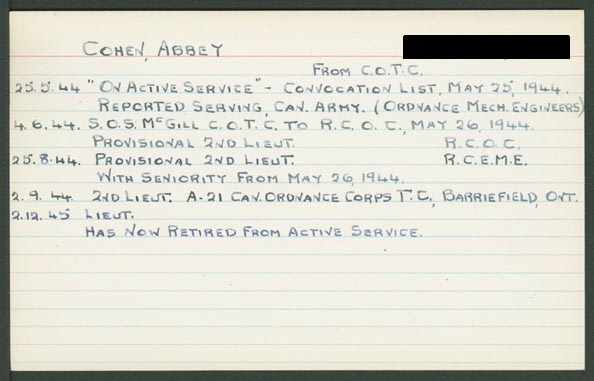 COHEN, ABBEY
FROM C.O.T.C.
25.5.44 "ON ACTIVE SERVICE" - CONVOCATION LIST, MAY 25, 1944.
REPORTED SERVING, CAN. ARMY. (ORDNANCE MECH. ENGINEERS)
4.6.44. S.O.S. McGILL C.O.T.C. TO R.C.O.C., MAY 26, 1944.
PROVISIONAL 2ND LIEUT. R.C.O.C.
25.8.44. PROVISIONAL 2ND LIEUT. R.C.E.M.E.
WITH SENIORITY FROM MAY 26, 1944.
2.9.44 2ND LIEUT. A-21 CAN. ORDNANCE CORPS T.C., BARRIEFIELD, ONT.
2.12.45 LIEUT.
HAS NOW RETIRED FROM ACTIVE SERVICE.